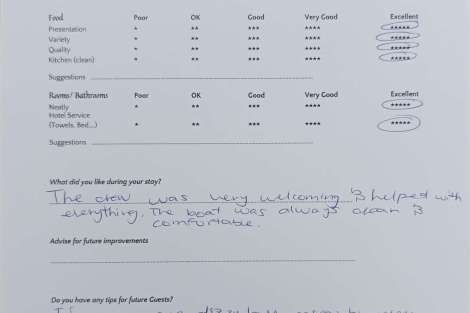 Food Poor OK Good Very Good Excellent
Presentation * ** *** **** *****
Variety * ** *** **** *****
Quality * ** *** **** *****
Kitchen (clean) * ** *** **** *****
Suggestions
Rooms/ Bathrooms Poor OK Good Very Good Excellent
Neatly * ** *** **** *****
Hotel Service
(Towels, Bed...) * ** *** **** *****
Suggestions
What did you like during your stay?
The crew was very welcoming & helped with
everything. The boat was always clean &
comfortable.
Advise for future improvements
Do you have any tips for future Guests?